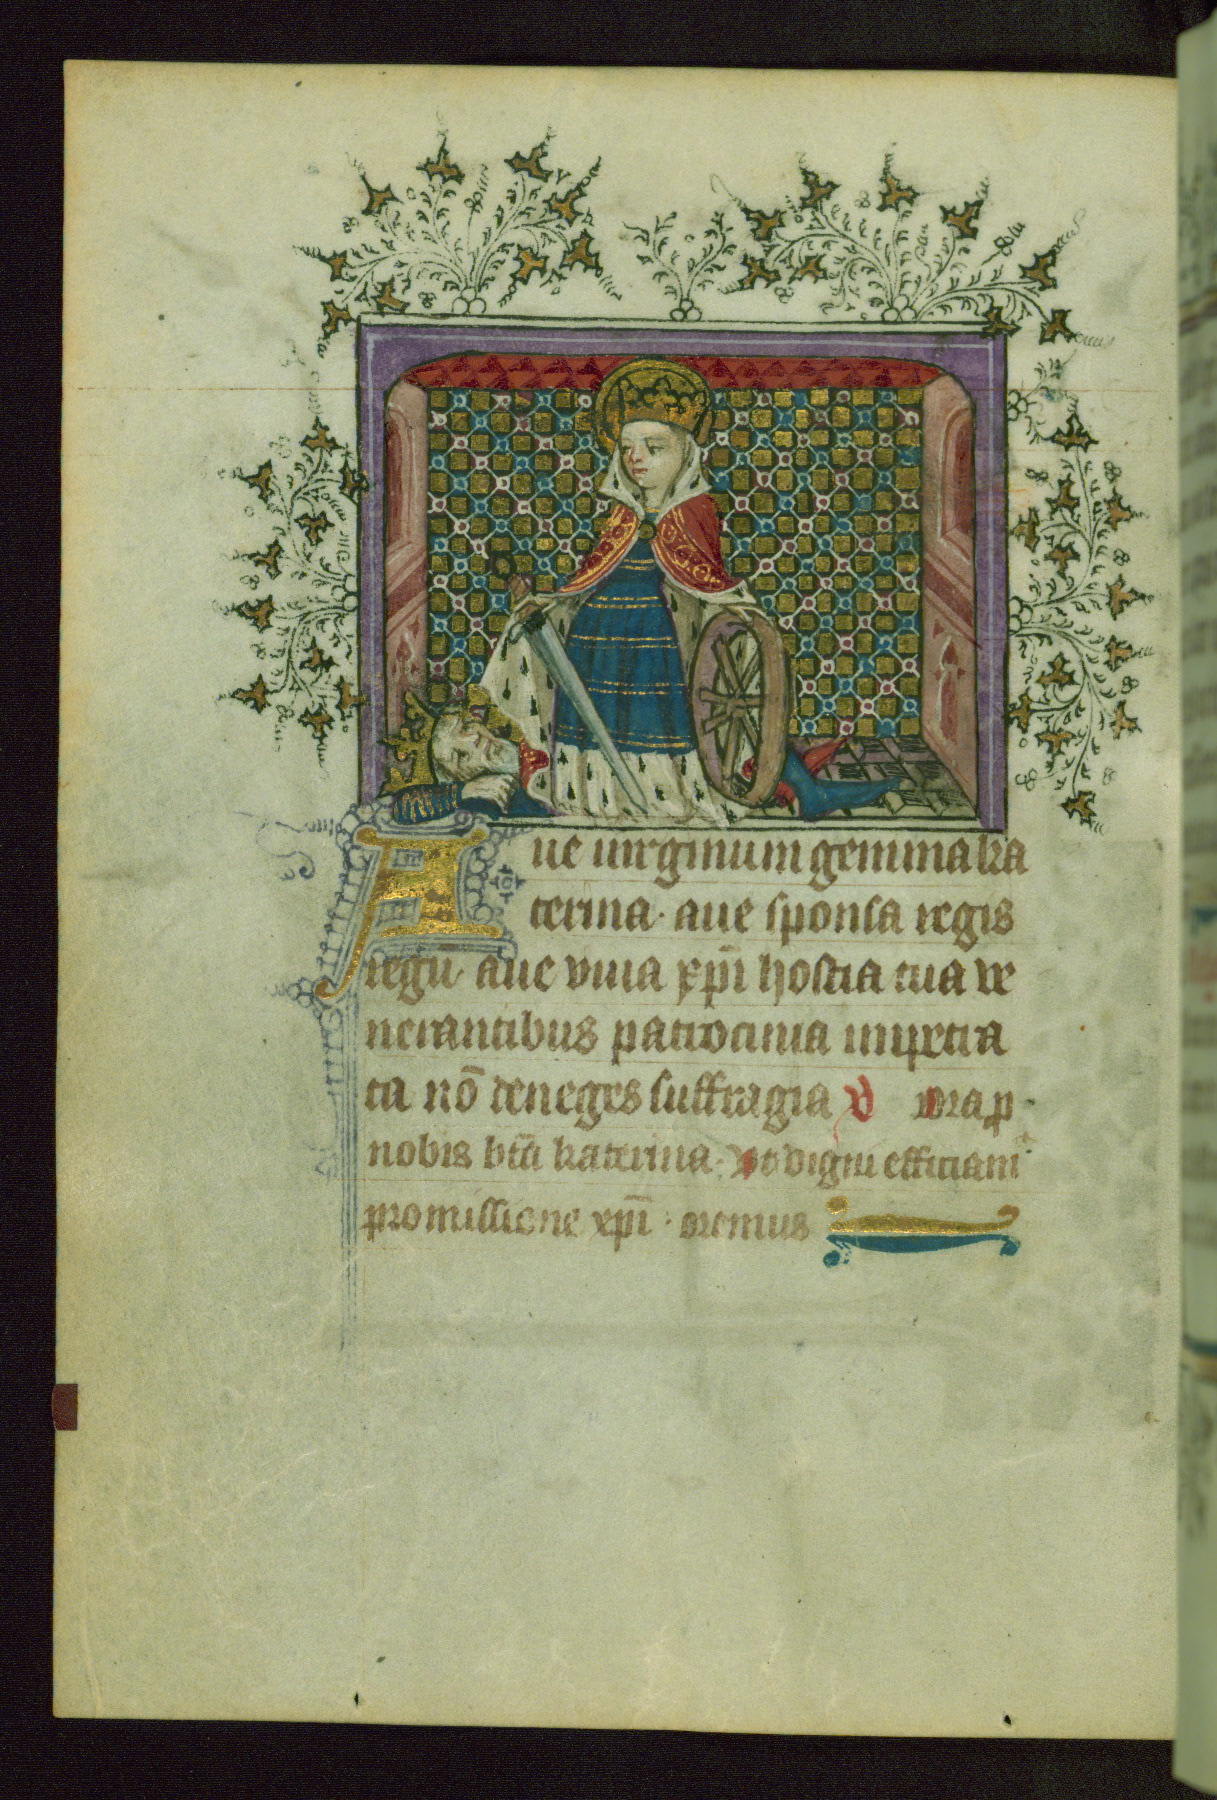 Aue uirginum gemma ka
terina · aue sponsa regis
regū · aue uiua xp̄i hostia tua ve
nerantibus patrocinia impetra
ta nō deneges suffragia v̄ Ora p
nobis btā katerina · vt digni efficiam
promissione xp̄i · oremus